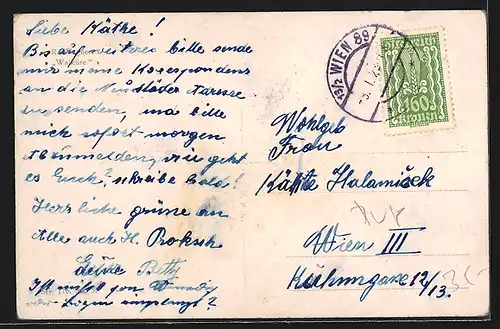 Liebe Käthe!
Bis auf weiteres bitte sende
"Walküre."
mir meine Korrespondenz
an die Neustädter Adresse
zu senden, und bitte
mich sofort morgen
Abzumelden, wie geht
es Euch?, schreibe bald!
Herzliche grüße an
Alle auch H. Proksch
Deine Betty
Ist nicht von
WIEN 89
160
Kronen
Wohlgeb
Frau
Käthe Halamiček
Wien III
Kübumgasse 12/13.